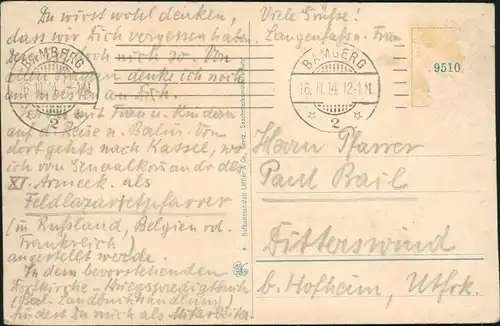 Du wirst wohl denken,
dass wir Dich vergessen haben.
doch nicht so. Von
allen denke ich noch
am meisten an Dich.
mit Frau u. Kindern
auf d. Reise n. Balin. Von
dort gehts nach Kassel, wo
ich vom Generalkomando des
XI. Armeek. als
Feldlazarettpfarrer
(in Rußland, Belgien od.
Frankreich)
angestellt werde.
In dem bevorstehenden
Dorfkirche-Kriegspredigtbuch
(Landbuchhandlung)
findest Du mich als Mitarbeiter.
Viele Grüße!
Langenfaß u. Frau
BAMBERG
2
BAMBERG
16. 11. 14. 12-1 N.
2
9510
Herrn Pfarrer
Paul Bail
Ditterswind
b. Hofheim, Utfrk.